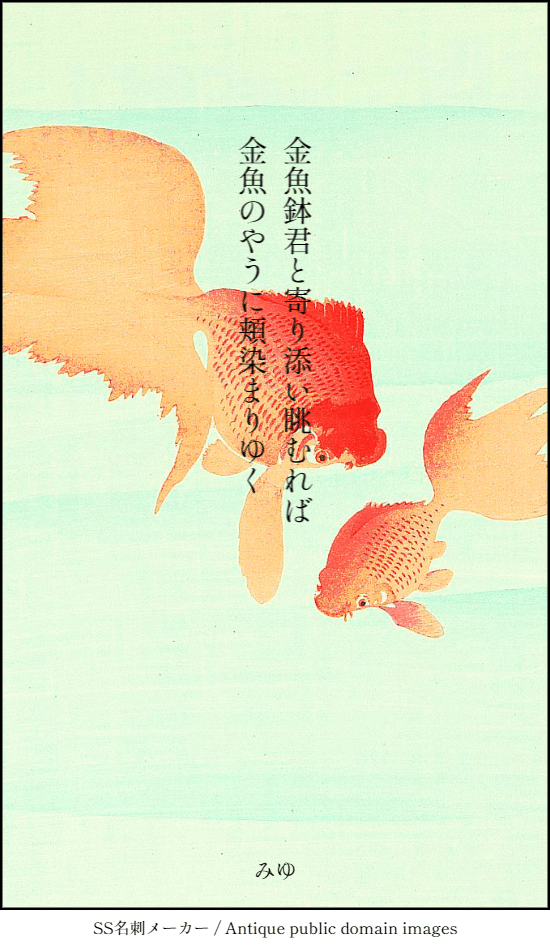 金魚鉢君と寄り添い眺むれば
金魚のやうに頬染まりゆく
みゆ
SS名刺メーカー / Antique public domain images